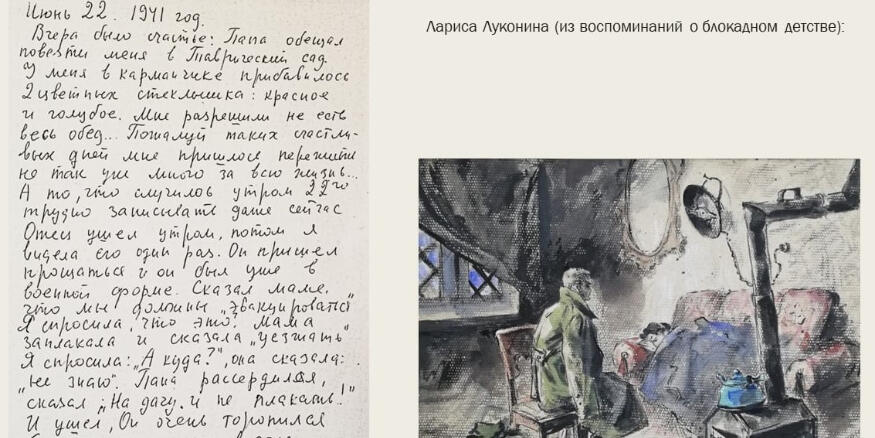 Июнь 22. 1941 год.
Вчера было счастье: Папа обещал
повезти меня в Таврический сад.
У меня в карманчике прибавилось
2 цветных стеклышка: красное
и голубое. Мне разрешили не есть
весь обед... Пожалуй таких счастли-
вых дней мне пришлось пережить
не так уж много за всю жизнь...
А то, что случилось утром 22го
трудно записывать даже сейчас
Отец ушел утром, потом я
видела его один раз. Он пришел
прощаться и он был уже в
военной форме. Сказал маме,
что мы должны „эвакуироваться"
Я спросила, что это? Мама
заплакала и сказала „уезжать"
Я спросила: „А куда?", она сказала:
„не знаю". Папа рассердился,
сказал: „На дачу. и не плакать!"
И ушел, Он очень торопился
Лариса Луконина (из воспоминаний о блокадном детстве):